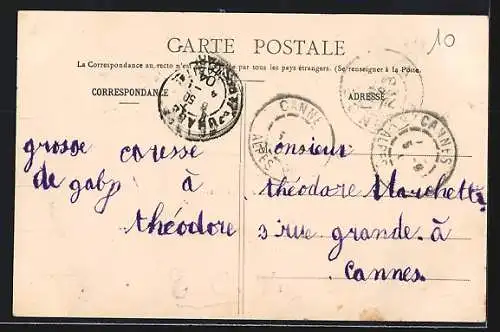 10
CARTE POSTALE
La Correspondance au recto n'est pas par tous les pays étrangers. (Se renseigner à la Poste.
CORRESPONDANCE
ADRESSE
CANNES
ALPES
CANNES
ALPES
grosse caresse
de gaby à
théodore
Monsieur
théodore Marchett
3 rue grande à
Cannes